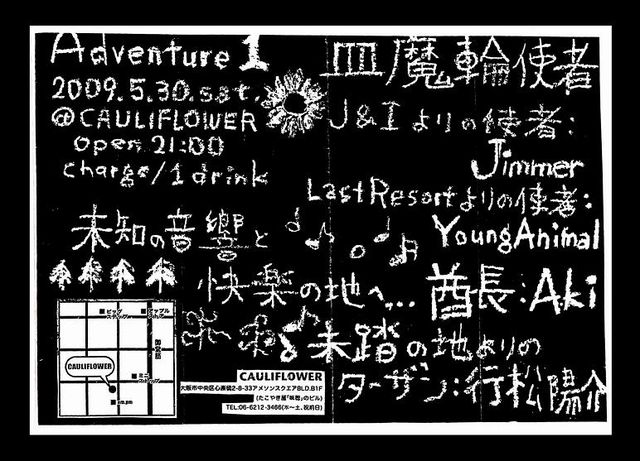 Adventure 1
2009.5.30.sat.
@CAULIFLOWER
open 21:00
charge/1drink
皿魔輪使者
J&Iよりの使者:
Jimmer
LastResortよりの使者:
YoungAnimal
未知の音響と
快楽の地へ...
酋長:Aki
未踏の地よりの
ターザン:行松陽介
ビッグ
ステップ
アップル
ストア
御堂筋
CAULIFLOWER
ミニ
ストップ
am.pm
CAULIFLOWER
大阪市中央区心斎橋2-8-33アメリカンスクエアBLD.B1F
TEL:06-6212-3466(水〜土、祝前日)